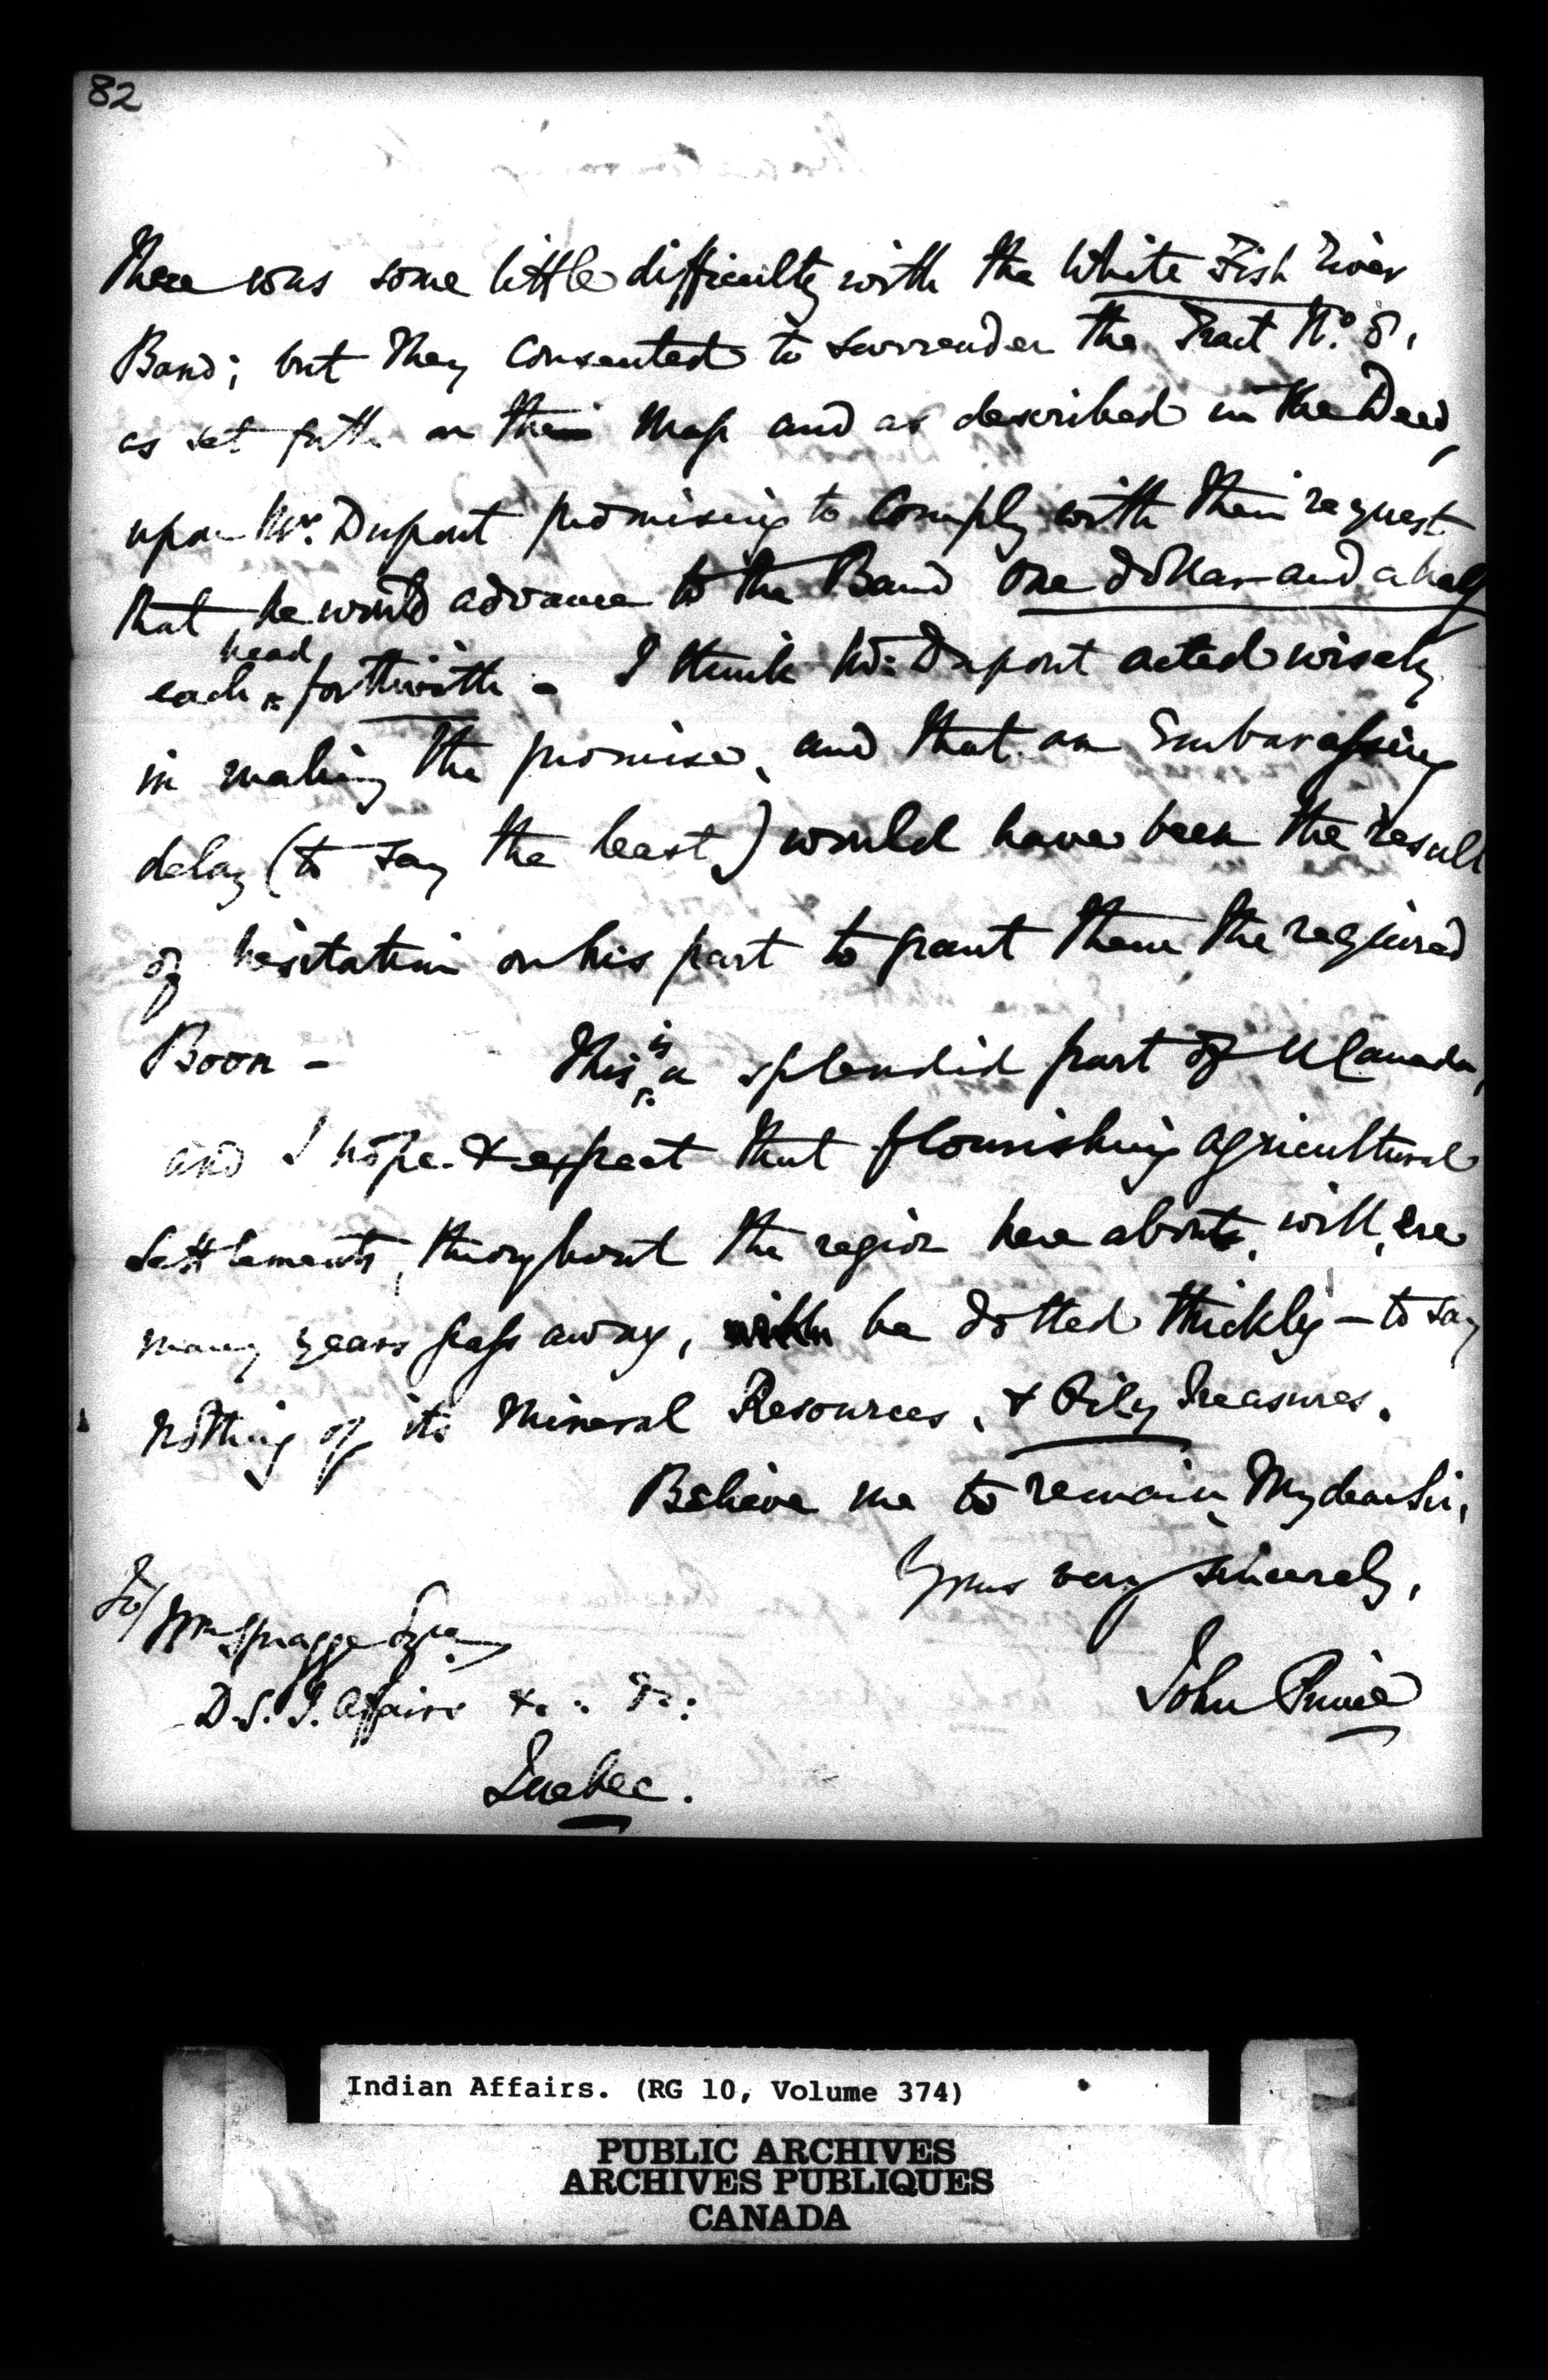 82
There was some little difficulty with the White Fish River
Band; but they consented to surrender the Tract No. 8,
as set forth on their Map and as described in the Deed,
upon Mr. Dupont promising to comply with their request
that he would advance to the Band one dollar and a half
each head forthwith - I think Mr: Dupont acted wisely
in making the promise, and that an Embarassing
delay (to say the least) would have been the result
of hesitation on his part to grant them the required
Boon - This is a splendid part of U Canada,
and I hope & expect that flourishing agricultural
Settlements, throughout the region here abouts, will, ere
many years pass away, be dotted thickly - to say
nothing of its Mineral Resources, & Oily Treasures.
Believe me to remain, My dear Sir,
Yours very sincerely,
John Prince
To/ Wm Spragge Esq.
D. S. I. Affairs &c: &c:
Quebec.
Indian Affairs. (RG 10, Volume 374)
PUBLIC ARCHIVES
ARCHIVES PUBLIQUES
CANADA